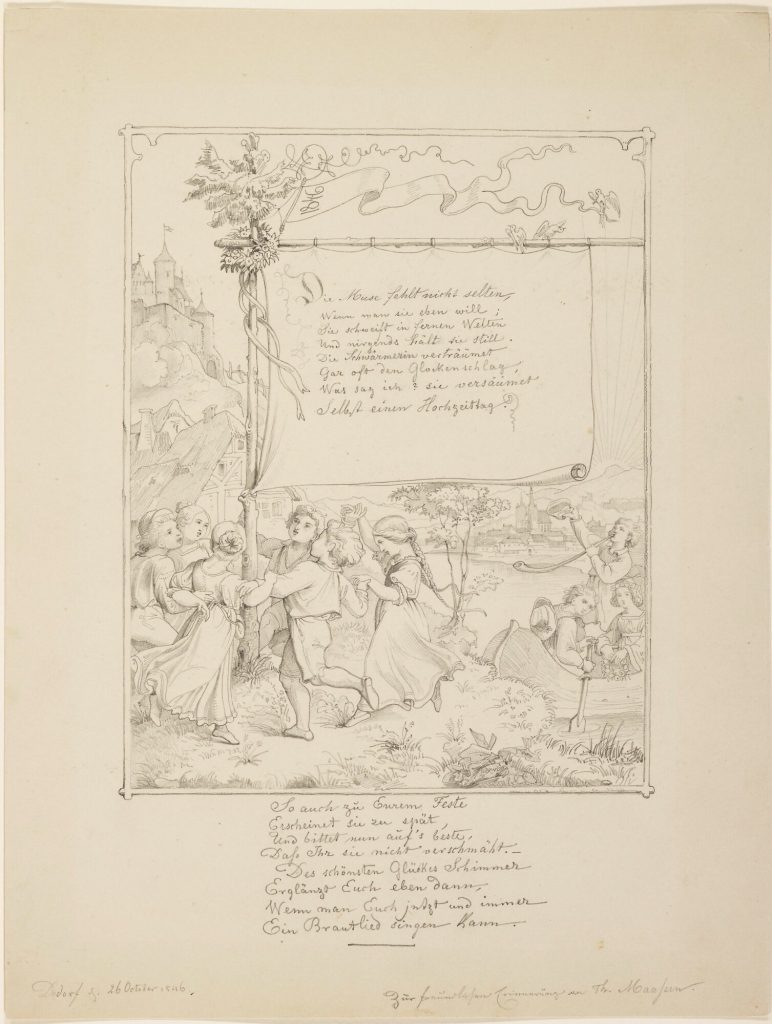 1846
Die Muse fehlt nicht selten,
Wenn man sie eben will;
Sie schweift in fernen Welten
Und nirgends hält sie still.
Die Schwärmerin verträumet
Gar oft den Glockenschlag,
Was sag ich? sie versäumet
Selbst einen Hochzeittag.
So auch zu Eurem Feste
Erscheinet sie zu spät,
Und bittet nun auf's beste,
Daß Ihr sie nicht verschmäht. –
Des schönsten Glückes Schimmer
Erglänzt Euch eben dann,
Wenn man Euch jetzt und immer
Ein Brautlied singen kann.
Ddorf d. 26 October 1846.
Zur freundlichen Erinnerung an Th. Maaßen.